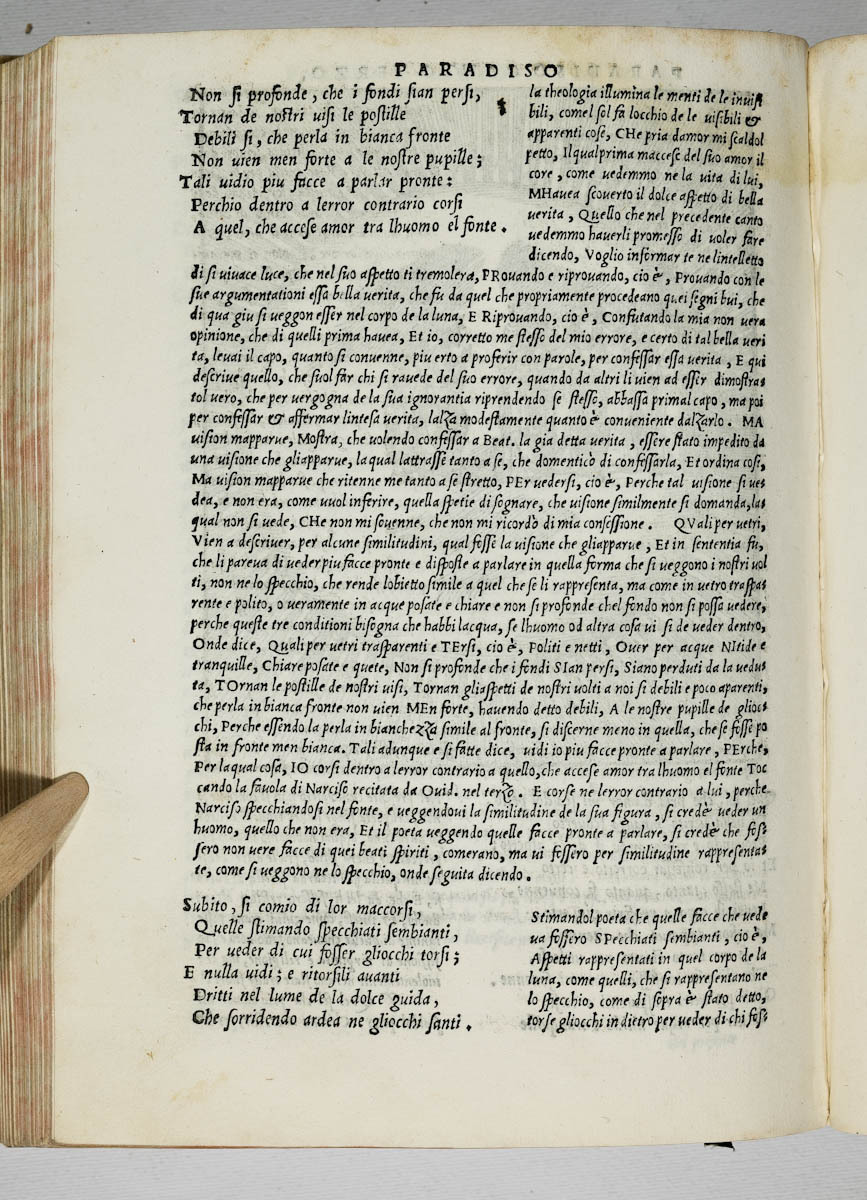 PARADISO
Non si profonde, che i fondi sian persi,
Tornan de nostri uisi le postille
Debili si, che perla in bianca fronte
Non uien men forte a le nostre pupille;
Tali uidio piu facce a parlar pronte:
Perchio dentro a lerror contrario corsi
A quel, che accese amor tra lhuomo el fonte.
la theologia illumina le menti de le inuisi
bili, comel sol fa locchio de le uisibili &
apparenti cose, CHe pria damor mi scaldol
petto, Ilqual prima maccese del suo amor il
core, come uedemmo ne la uita di lui,
MHauea scouerto il dolce aspetto di bella
uerita, Quello che nel precedente canto
uedemmo hauerli promesso di uoler fare
dicendo, Voglio informar te ne lintelletto
di si uiuace luce, che nel suo aspetto ti tremolera, PRouando e riprouando, cio è, Prouando con le
sue argumentationi essa bella uerita, che fu da quel che propriamente procedeano quei segni bui, che
di qua giu si ueggon esser nel corpo de la luna, E Riprouando, cio è, Confutando la mia non uera
opinione, che di quelli prima hauea, Et io, corretto me stesso del mio errore, e certo di tal bella ueri
ta, leuai il capo, quanto si conuenne, piu erto a proferir con parole, per confessar essa uerita, E qui
descriue quello, che suol far chi si rauede del suo errore, quando da altri li uien ad esser dimostra-
tol uero, che per uergogna de la sua ignorantia riprendendo se stesso, abbassa primal capo, ma poi
per confessar & affermar lintesa uerita, lalza modestamente quanto è conueniente dalzarlo. MA
uision mapparue, Mostra, che uolendo confessar a Beat. la gia detta uerita, essere stato impedito da
una uisione che gliapparue, la qual lattrasse tanto a se, che domenticò di confessarla, Et ordina cosi,
Ma uision mapparue che ritenne me tanto a se stretto, PEr uedersi, cio è, Perche tal uisione si ue-
dea, e non era, come uuol inferire, quella spetie di sognare, che uisione similmente si domanda, la-
qual non si uede, CHe non mi souenne, che non mi ricordò di mia confessione. QVali per uetri,
Vien a descriuer, per alcune similitudini, qual fosse la uisione che gliapparue, Et in sententia fu,
che li pareua di ueder piu facce pronte e disposte a parlare in quella forma che si ueggono i nostri uol
ti, non ne lo specchio, che rende lobietto simile a quel che se li rappresenta, ma come in uetro traspa-
rente e polito, o ueramente in acque posate e chiare e non si profonde chel fondo non si possa uedere,
perche queste tre conditioni bisogna che habbi lacqua, se lhuomo od altra cosa ui si de ueder dentro,
Onde dice, Quali per uetri trasparenti e TErsi, cio è, Politi e netti, Ouer per acque NItide e
tranquille, Chiare posate e quete, Non si profonde che i fondi SIan persi, Siano perduti da la uedu-
ta, TOrnan le postille de nostri uisi, Tornan gliaspetti de nostri uolti a noi si debili e poco aparenti,
che perla in bianca fronte non uien MEn forte, hauendo detto debili, A le nostre pupille de glioc-
chi, Perche essendo la perla in bianchezza simile al fronte, si discerne meno in quella, che se fosse po
sta in fronte men bianca. Tali adunque e si fatte dice, uidi io piu facce pronte a parlare, PErche,
Per laqual cosa, IO corsi dentro a lerror contrario a quello, che accese amor tra lhuomo el fonte Toc
cando la fauola di Narciso recitata da Ouid. nel terzo. E corse ne lerror contrario a lui, perche
Narciso specchiandosi nel fonte, e ueggendoui la similitudine de la sua figura, si credè ueder un
huomo, quello che non era, Et il poeta ueggendo quelle facce pronte a parlare, si credè che fos-
sero non uere facce di quei beati spiriti, comerano, ma ui fossero per similitudine rappresenta-
te, come si ueggono ne lo specchio, onde seguita dicendo.
Subito, si comio di lor maccorsi,
Quelle stimando specchiati sembianti,
Per ueder di cui fosser gliocchi torsi;
E nulla uidi; e ritorsili auanti
Dritti nel lume de la dolce guida,
Che sorridendo ardea ne gliocchi santi.
Stimandol poeta che quelle facce che uede
ua fossero SPecchiati sembianti, cio è,
Aspetti rappresentati in quel corpo de la
luna, come quelli, che si rappresentano ne
lo specchio, come di sopra è stato detto,
torse gliocchi in dietro per ueder di chi fos-